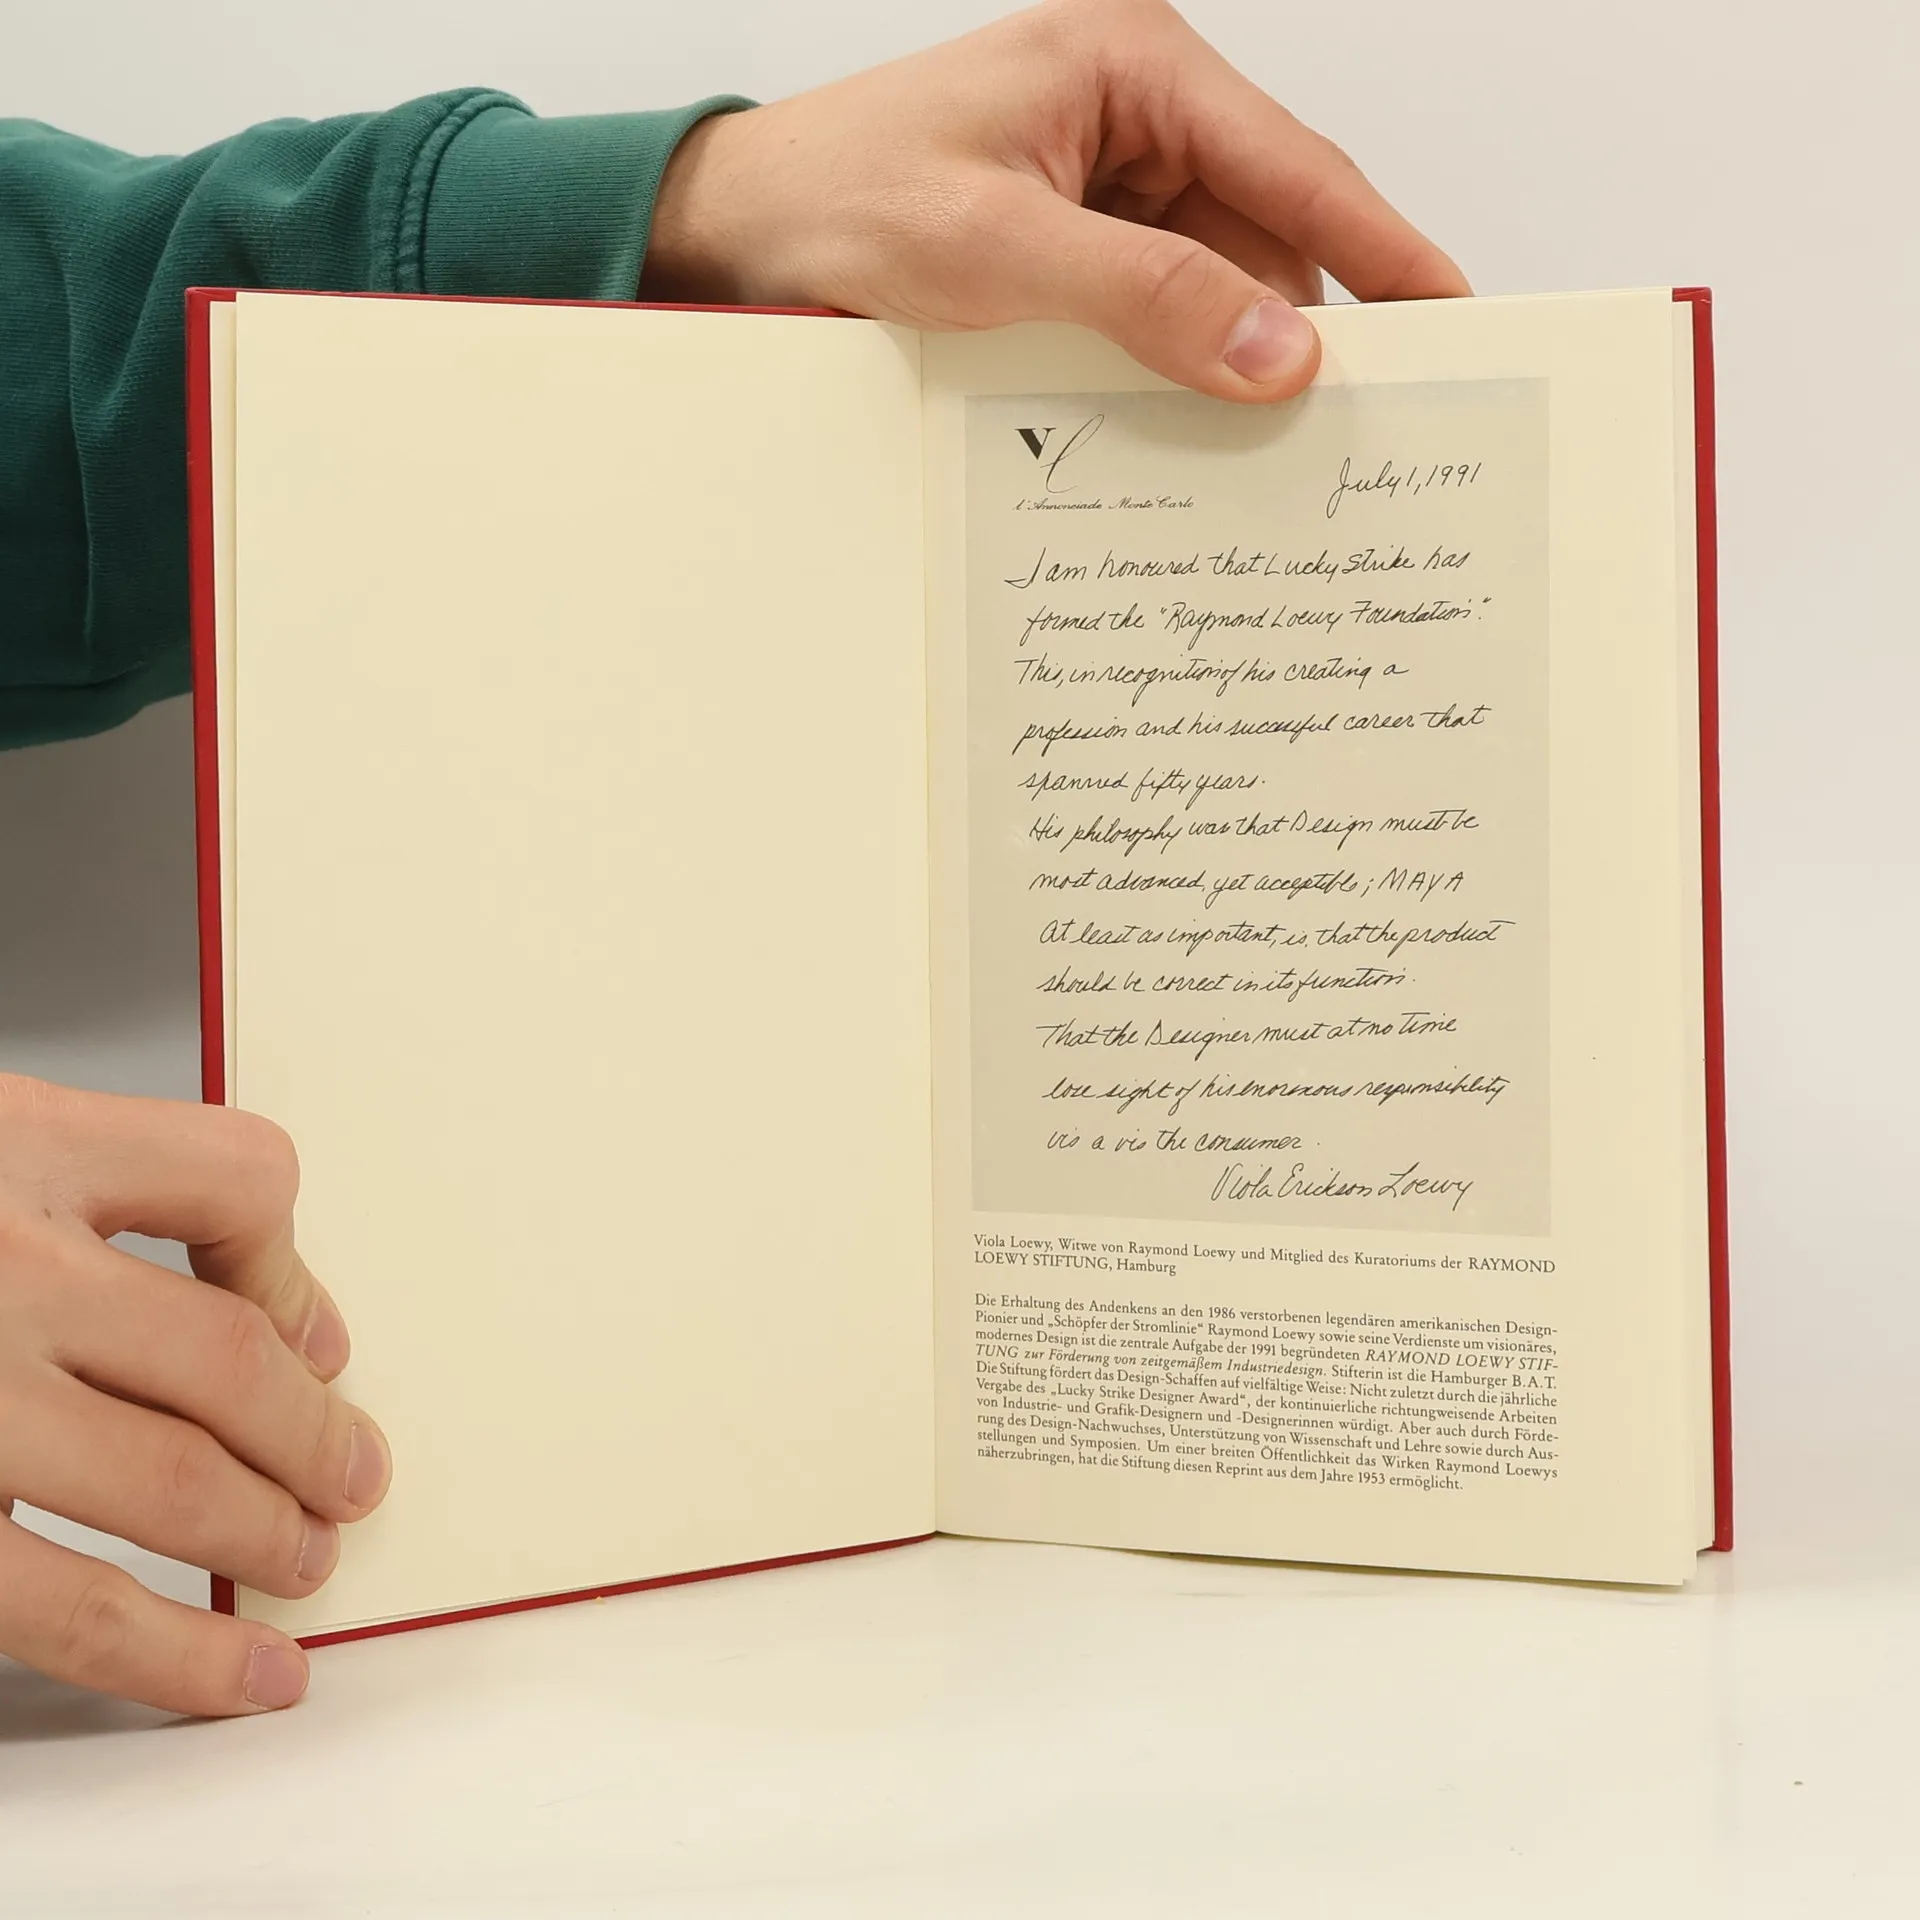 Vl
l'Annonciade Monte Carlo
July 1, 1991
I am honoured that Lucky Strike has
formed the "Raymond Loewy Foundation".
This, in recognition of his creating a
profession and his successful career that
spanned fifty years.
His philosophy was that Design must be
most advanced, yet acceptible; MAYA
At least as important, is, that the product
should be correct in its function.
That the Designer must at no time
lose sight of his enormous responsibility
vis a vis the consumer.
Viola Erickson Loewy
Viola Loewy, Witwe von Raymond Loewy und Mitglied des Kuratoriums der RAYMOND
LOEWY STIFTUNG, Hamburg
Die Erhaltung des Andenkens an den 1986 verstorbenen legendären amerikanischen Design-
Pionier und „Schöpfer der Stromlinie“ Raymond Loewy sowie seine Verdienste um visionäres,
modernes Design ist die zentrale Aufgabe der 1991 begründeten RAYMOND LOEWY STIF-
TUNG zur Förderung von zeitgemäßem Industriedesign. Stifterin ist die Hamburger B.A.T.
Die Stiftung fördert das Design-Schaffen auf vielfältige Weise: Nicht zuletzt durch die jährliche
Vergabe des „Lucky Strike Designer Award“, der kontinuierliche richtungweisende Arbeiten
von Industrie- und Grafik-Designern und -Designerinnen würdigt. Aber auch durch Förde-
rung des Design-Nachwuchses, Unterstützung von Wissenschaft und Lehre sowie durch Aus-
stellungen und Symposien. Um einer breiten Öffentlichkeit das Wirken Raymond Loewys
näherzubringen, hat die Stiftung diesen Reprint aus dem Jahre 1953 ermöglicht.